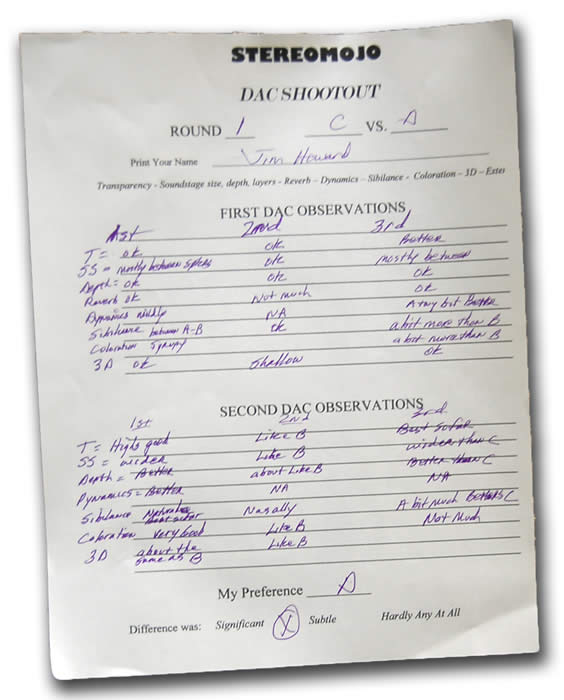 STEREOMOJO
DAC SHOOTOUT
ROUND 1 C VS. A
Print Your Name Jim Howard
Transparency - Soundstage size, depth, layers - Reverb – Dynamics – Sibilance - Coloration – 3D – Ester
FIRST DAC OBSERVATIONS
1st 2nd 3rd
T = ok ok Better
SS = mostly between Spkrs ok mostly between
Depth = ok ok ok
Reverb ok Not much ok
Dynamics NA A tiny bit Better
Sibilance between A-B ok a bit more than B
Coloration Syrupy a bit more than B
3D ok Shallow ok
SECOND DAC OBSERVATIONS
1st 2nd 3rd
T = Highs good Like B Best So far
SS = wider Like B wider than C
Depth = Better about Like B Better than C
Dynamics = Better NA NA
Sibilance Best so far Nasally A bit much C
Coloration very Good Like B Not Much
3D about the same as B Like B
My Preference A
Difference was: Significant X Subtle Hardly Any At All